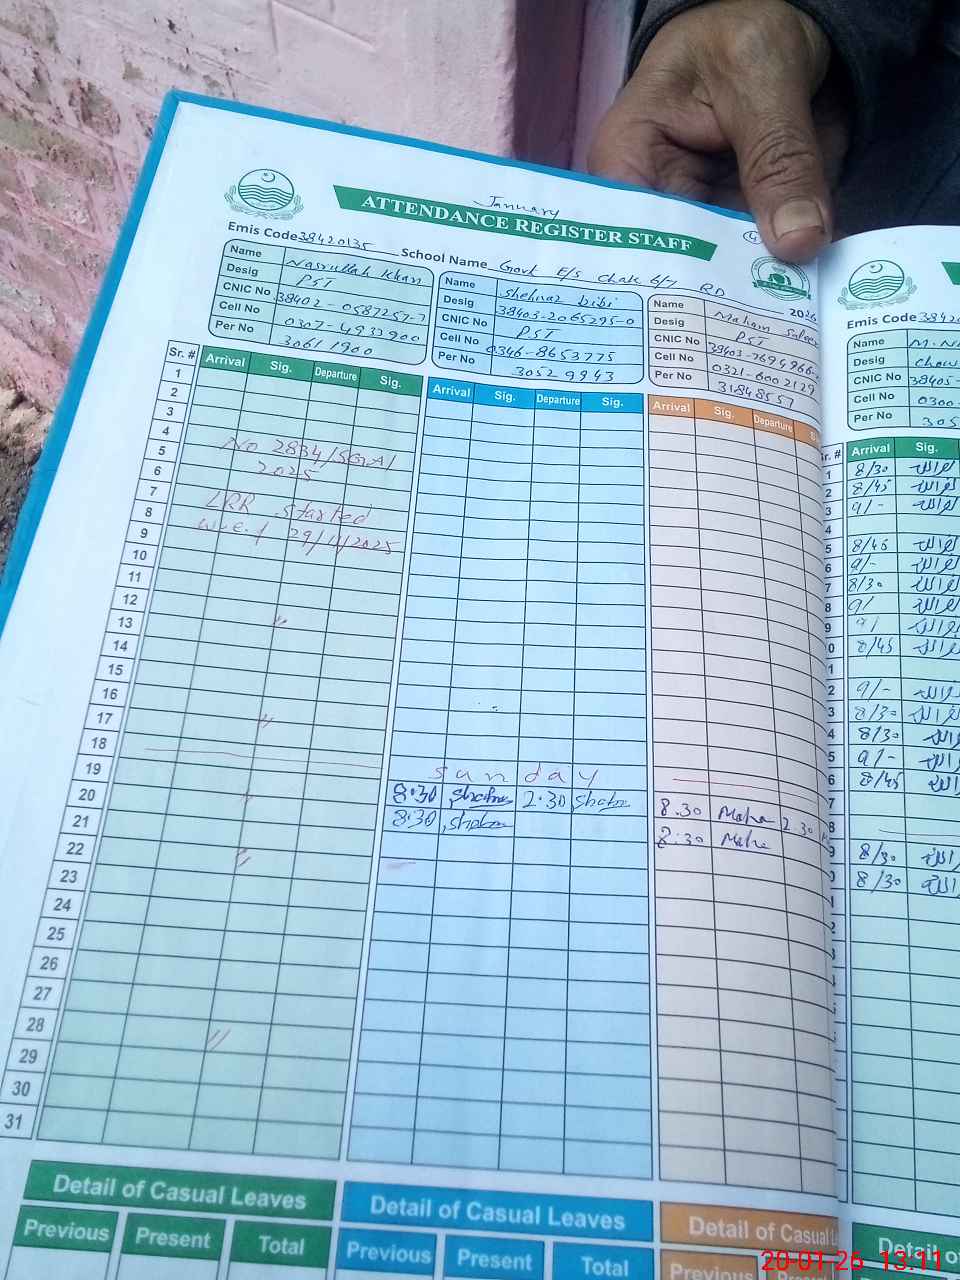 January
ATTENDANCE REGISTER STAFF
4
Emis Code 38420135 School Name Govt E/S Chak 6/7 RD 2026
Name Nasrullah Khan
Desig PST
CNIC No 38402-0587257-7
Cell No 0307-4933900
Per No 30611900
Name Shehnaz bibi
Desig 38403-2065295-0
CNIC No PST
Cell No 0346-8653775
Per No 30529943
Name Maham
Desig PST
CNIC No 38403-7694966-
Cell No 0321-6002129
Per No 31848557
Sr. # Arrival Sig. Departure Sig. Arrival Sig. Departure Sig. Arrival Sig. Departure
1
2
3
4
5 No 2834/SGA/
6 2025
7
8 LRR started
9 w.e.f 29/11/2025
10
11
12
13 "
14
15
16
17 "
18
19 Sunday
20 8.30 2.30 8.30 Maha 2.30
21 8:30 8:30 Maha
22
23
24
25
26
27
28
29 "
30
31
Detail of Casual Leaves
Previous Present Total
Detail of Casual Leaves
Previous Present Total
Detail of Casual
Previous
Emis Code 3842
Name M.
Desig Chow
CNIC No 38405-
Cell No 0300-
Per No 305
Arrival Sig.
8/30
8/45
9/-
8/45
9/-
8/30
9/
9/
8/45
9/-
8/30
8/30
9/-
8/45
8/30
8/30
Detail o
20-01-26 13:11